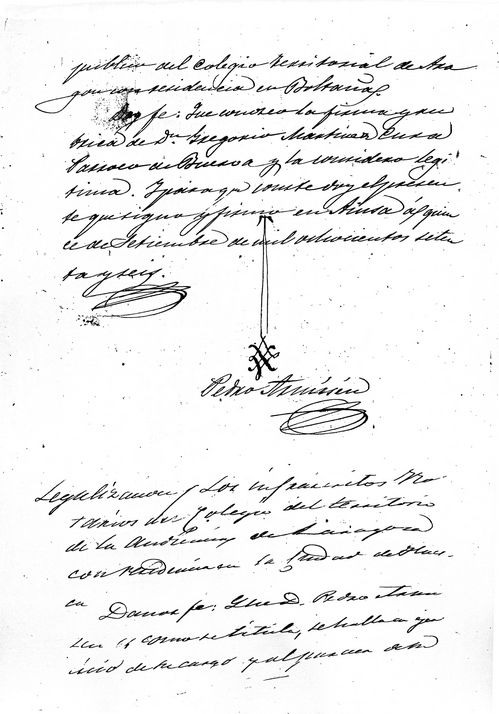 publico del Colegio territorial de Ara
gon con residencia en Boltaña,
Doy fe: Que conozco la firma y ru
brica de Dn. Gregorio Martinez Cura
Parroco de y la considero legi
tima. Y para que conste doy el presen
te que signo y firmo en Ainsa á quin
ce de Setiembre de mil ochocientos seten
ta y seis
Pedro
Legalizacion Los infrascritos No
tarios del Colegio del territorio
de la Audiencia de Zaragoza
con residencia en la Ciudad de Hues-
ca
Damos fe: Que D. Pedro
es como se titula, se halla en ejer
cicio de su cargo y al parecer